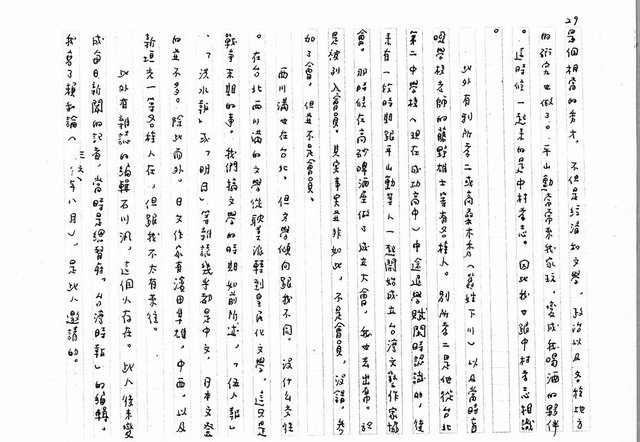 29
是個相當的秀才。不但是經濟和文學,政治以及各種地方
的研究也做了。平山勳常常來我家玩,變成我喝酒的夥伴
。這時候一起來的是中村孝志。因此我也跟中村孝志相識
。
此外有別所孝二或高桑末秀(舊姓下川)以及當時高
學校老師的藤野雄士等有各種人。別所孝二是他從台北
第二中學校(現在成功高中)中途退學賦閒時認識的,使
未有一段時期跟平山勳等人一起開始成立台灣文藝作家協
會。那時候在高砂啤酒屋做了成立大會,我也去出席。於
是被列入會員。其實事實並非如此,不是會員。沒錯,參
加了會,但並不是會員。
西川滿也在台北,但文學傾向跟我不同,沒什麼交往
。在台北西川滿的文學從耽美派轉到皇民化文學,這只是
戰爭末期的事。我們搞文學的時期如前所述,「伍人報」
、「洪水報」或「明日」等雜誌幾乎都是中文,日本文登
的並不多。除此而外,日文作家有濱田隼雄,中西,以及
新垣光一等各種人在,但跟我不太有來往。
此外有雜誌的編輯石川汎,這個人存在。此人後來變
成每日新聞的記者,當時是總督府「台灣時報」的編輯。
我寫了賴和論(三六年八月),是此人邀請的。